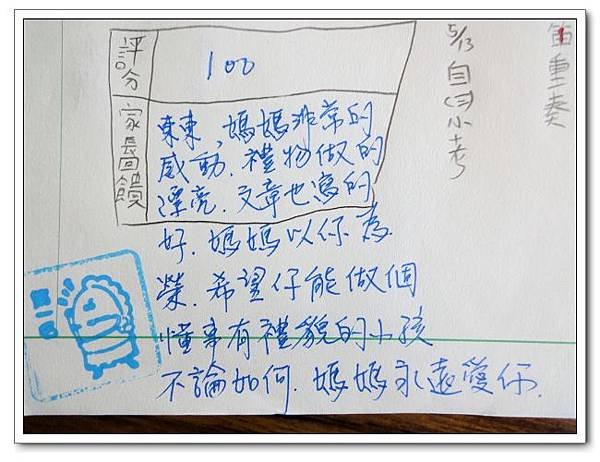 笛重奏
5/13 自 小考
評分
100
家長回饋
東東,媽媽非常的
感動.禮物做的
漂亮.文章也寫的
好.媽媽以你為
榮.希望你能做個
懂事有禮貌的小孩
不論如何.媽媽永遠愛你.